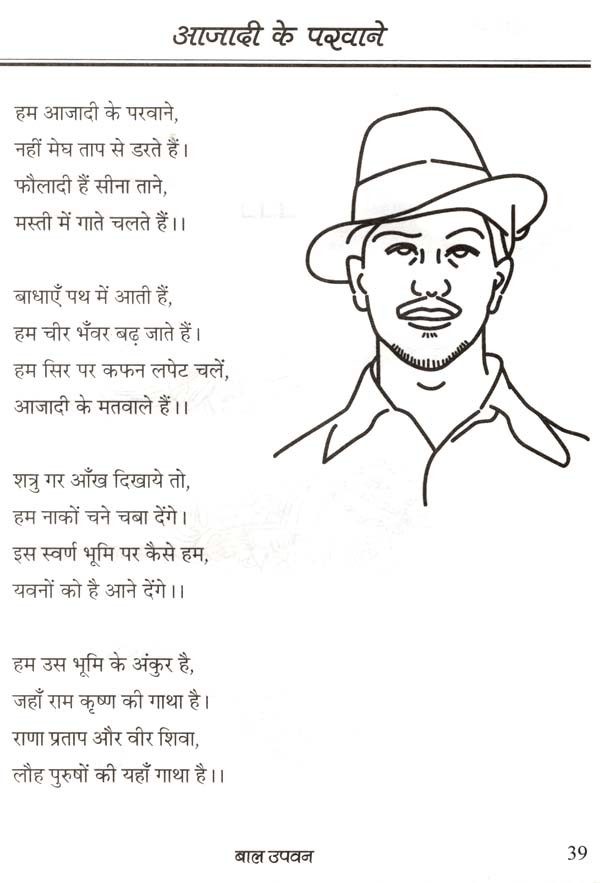 आजादी के परवाने
हम आजादी के परवाने,
नहीं मेघ ताप से डरते हैं।
फौलादी हैं सीना ताने,
मस्ती में गाते चलते हैं।।
बाधाएँ पथ में आती हैं,
हम चीर भँवर बढ़ जाते हैं।
हम सिर पर कफन लपेट चलें,
आजादी के मतवाले हैं।।
शत्रु गर आँख दिखाये तो,
हम नाकों चने चबा देंगे।
इस स्वर्ण भूमि पर कैसे हम,
यवनों को है आने देंगे।।
हम उस भूमि के अंकुर है,
जहाँ राम कृष्ण की गाथा है।
राणा प्रताप और वीर शिवा,
लौह पुरुषों की यहाँ गाथा है।।
बाल उपवन
39